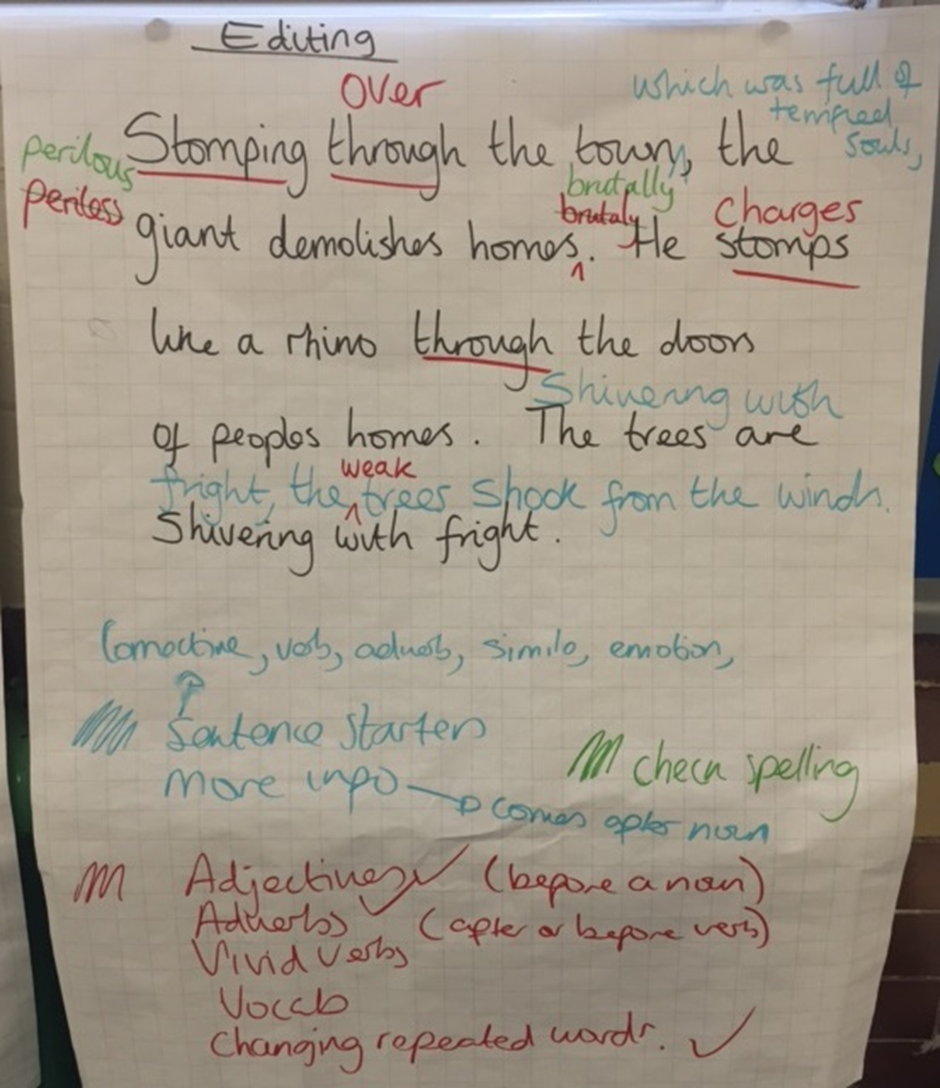 Editing
over
which was full of
terrified
souls,
Stomping through the town, the
perilous
periloss
brutally
brutaly
charges
giant demolishes homes. He stomps
like a rhino through the doors
Shivering with
of peoples homes. The trees are
weak
fright, the trees shook from the wind.
Shivering with fright.
Connective, verb, adverb, simile, emotion,
Sentence starters
More info → comes after noun
check spelling
Adjectives ✓ (before a noun)
Adverbs ✓ (after or before verb)
Vivid verbs
Vocab
Changing repeated words. ✓